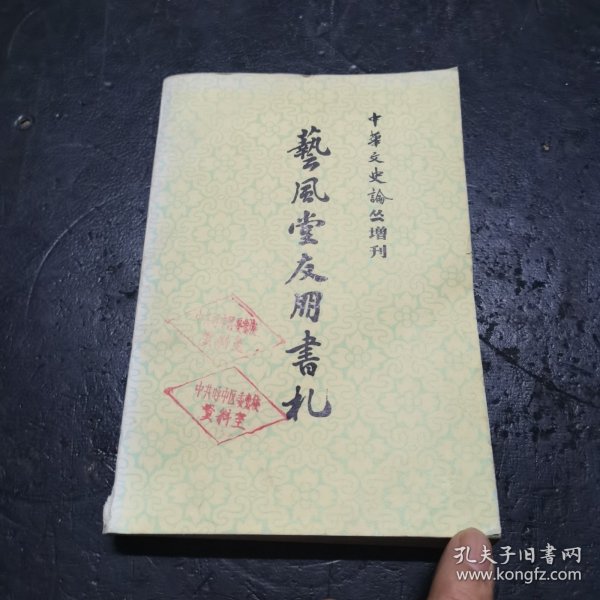 中華文史論丛增刊
藝風堂友朋書札
资料室
孔夫子旧書网
www.kongfz.com